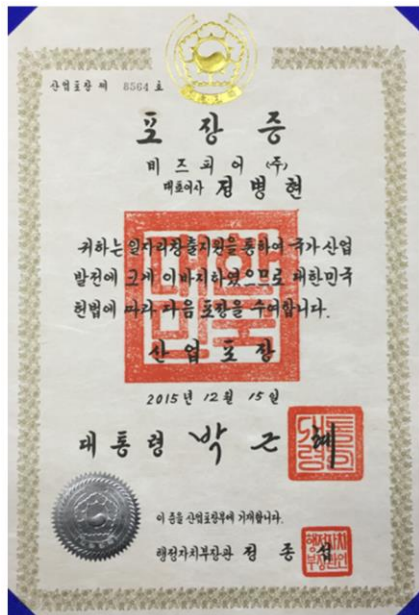 산업포장 제 8564 호
포장증
비즈피어(주)
대표이사 정병현
귀하는 일자리창출지원을 통하여 국가산업
발전에 크게 이바지하였으므로 대한민국
헌법에 따라 다음 포장을 수여합니다.
산업포장
2015년 12월 15일
대통령 박근혜
이 증을 산업포장부에 기재합니다.
행정자치부장관 정종섭